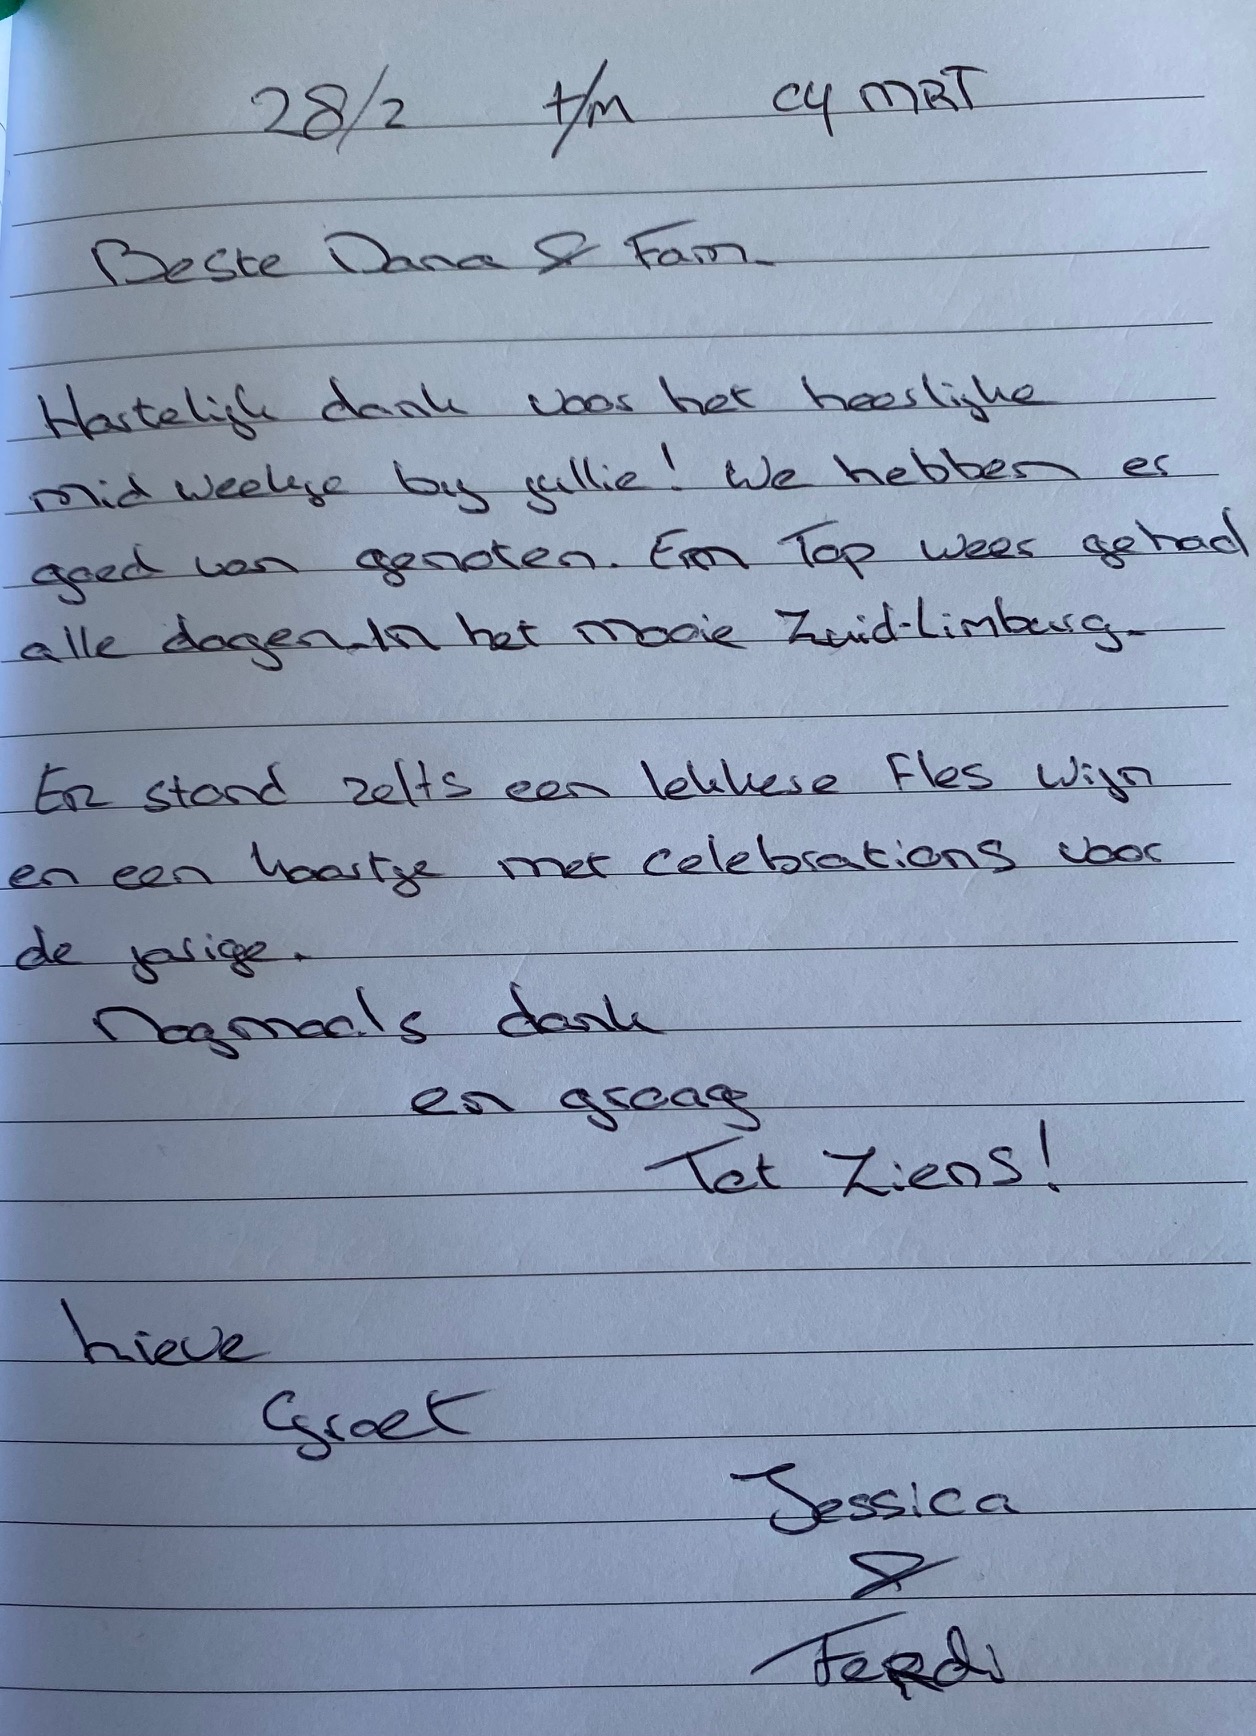 28/2 t/m 04 MRT
Beste Dana & Fam.
Hartelijk dank voor het heerlijke
midweekje bij jullie! We hebben er
goed van genoten. Een Top weer gehad
alle dagen in het mooie Zuid-Limburg.
Er stond zelfs een lekkere Fles Wijn
en een kaartje met celebrations voor
de jarige.
Nogmaals dank
en graag
Tot Ziens!
Lieve
Groet
Jessica
&
Ferdi